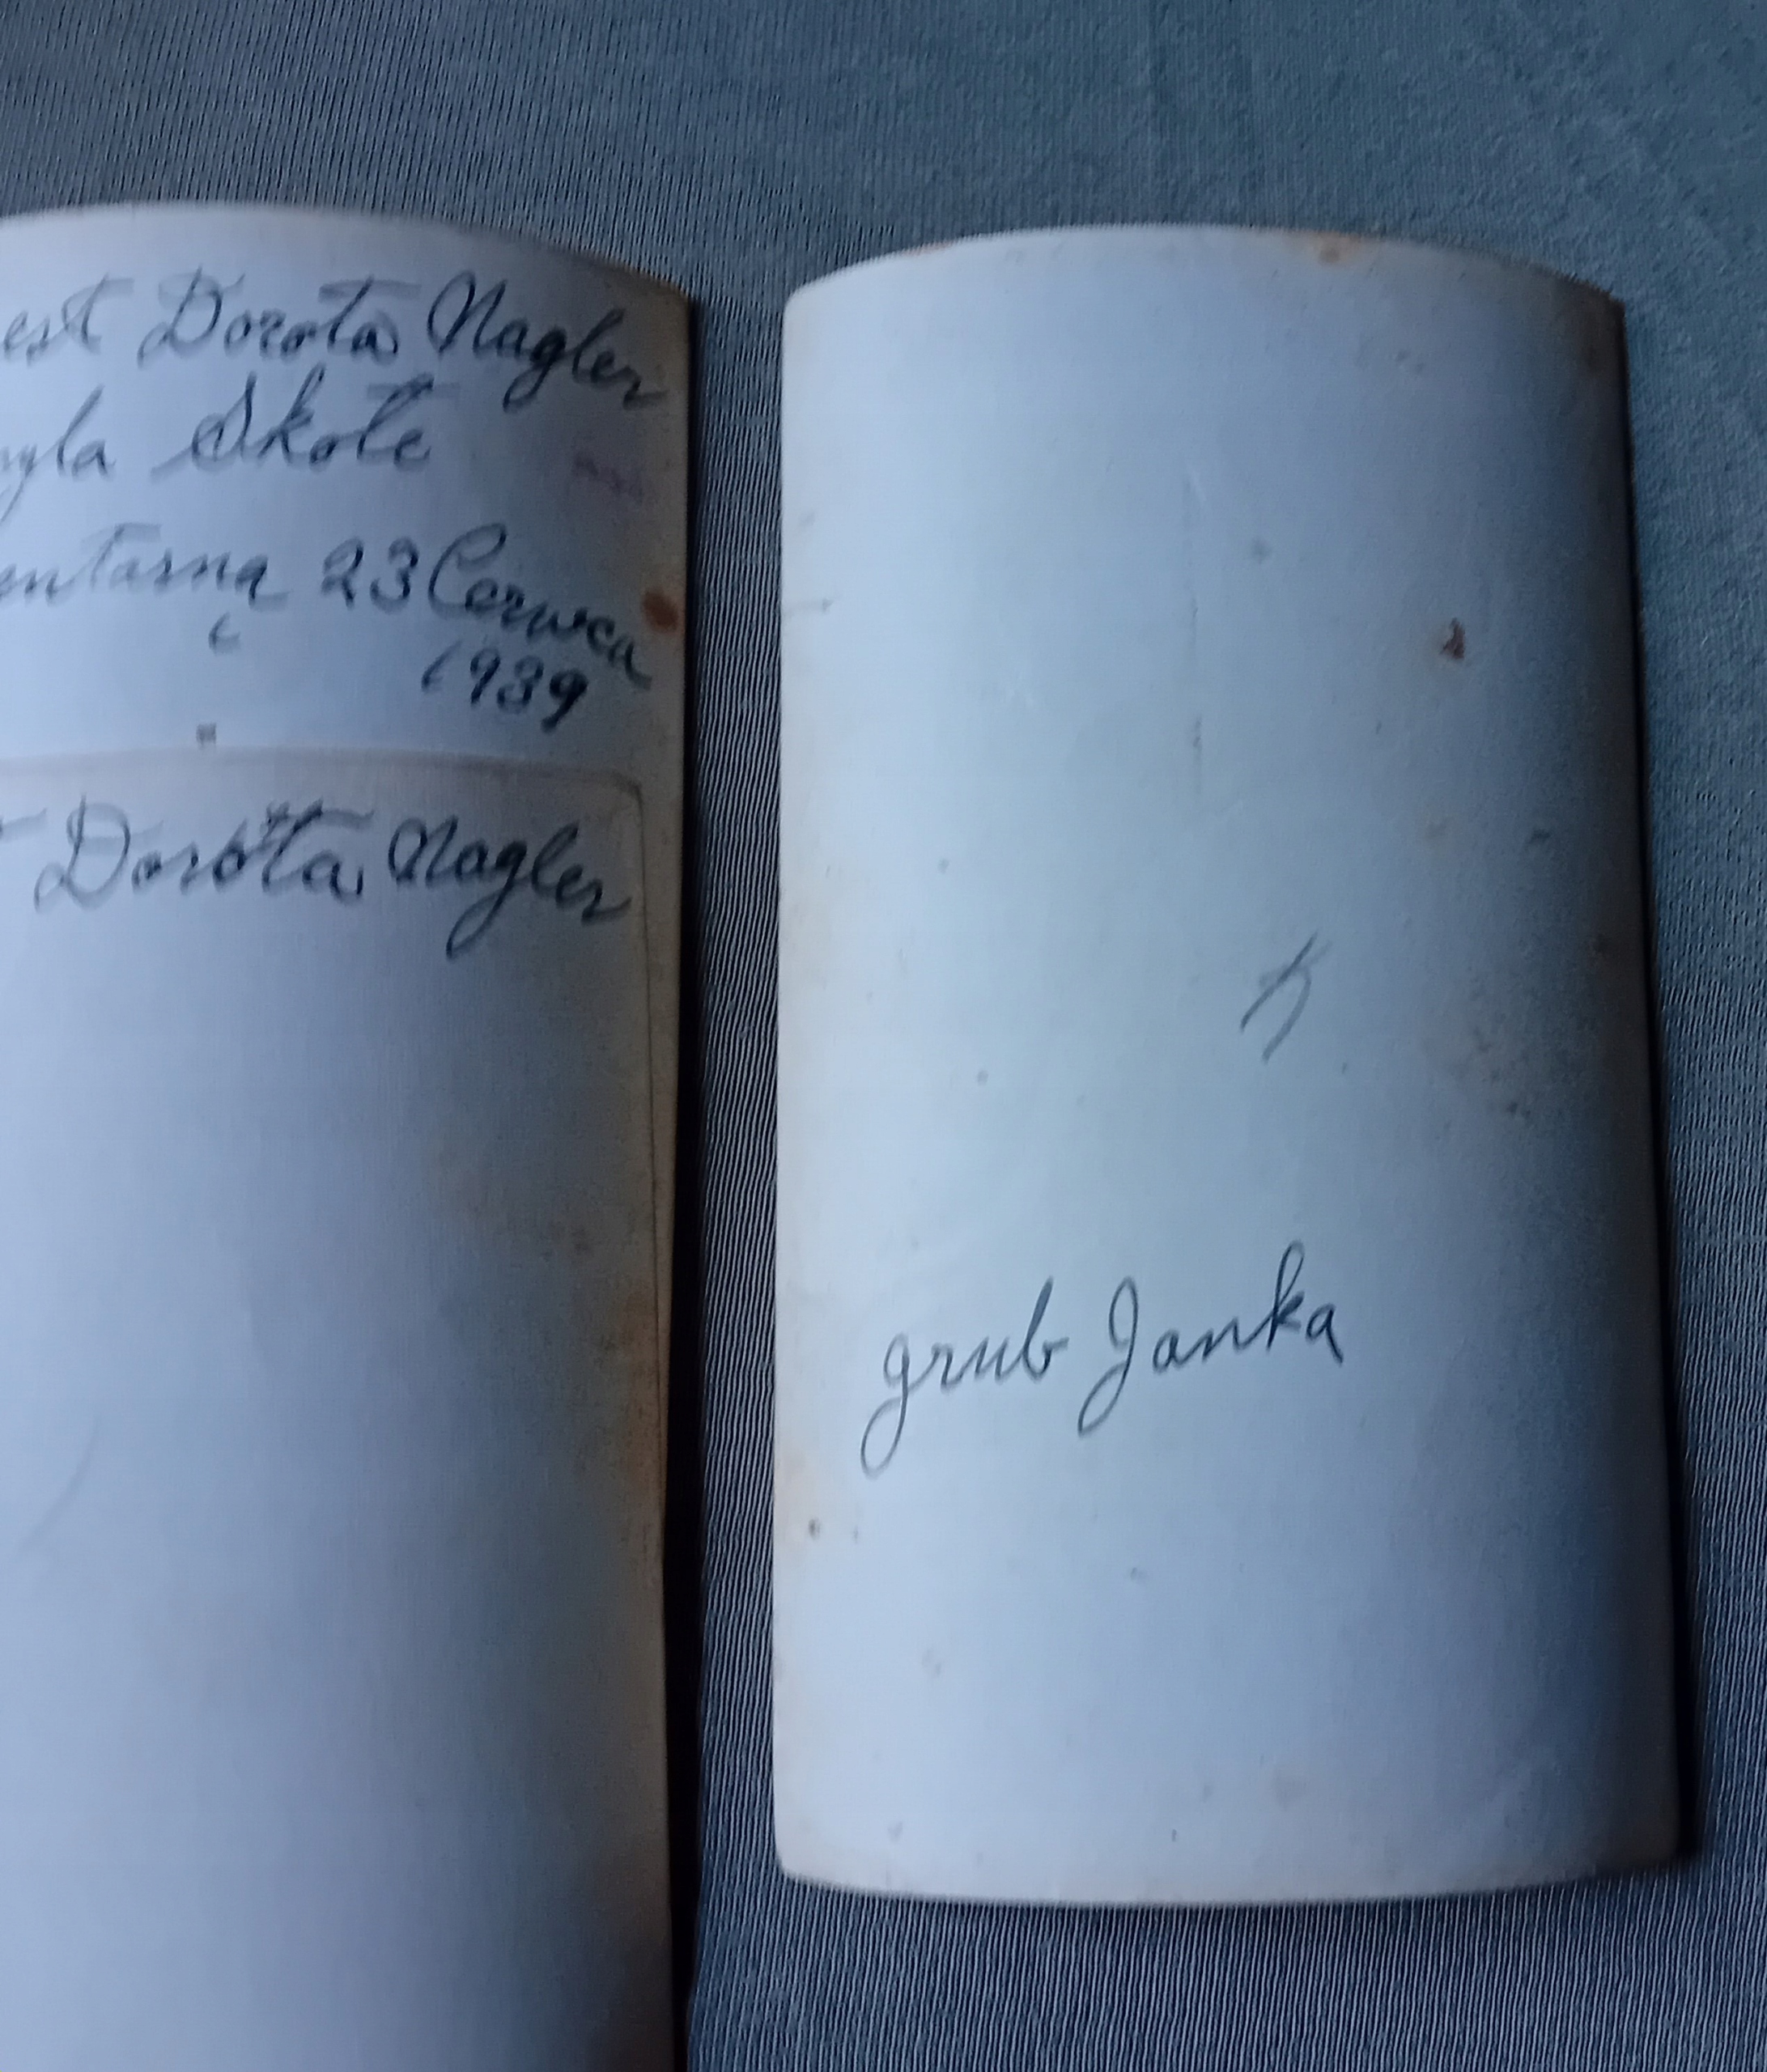 est Dorota Nagler
yla Skołe
entarną 23 Cerwca
1939
Dorota Nagler
grub Janka